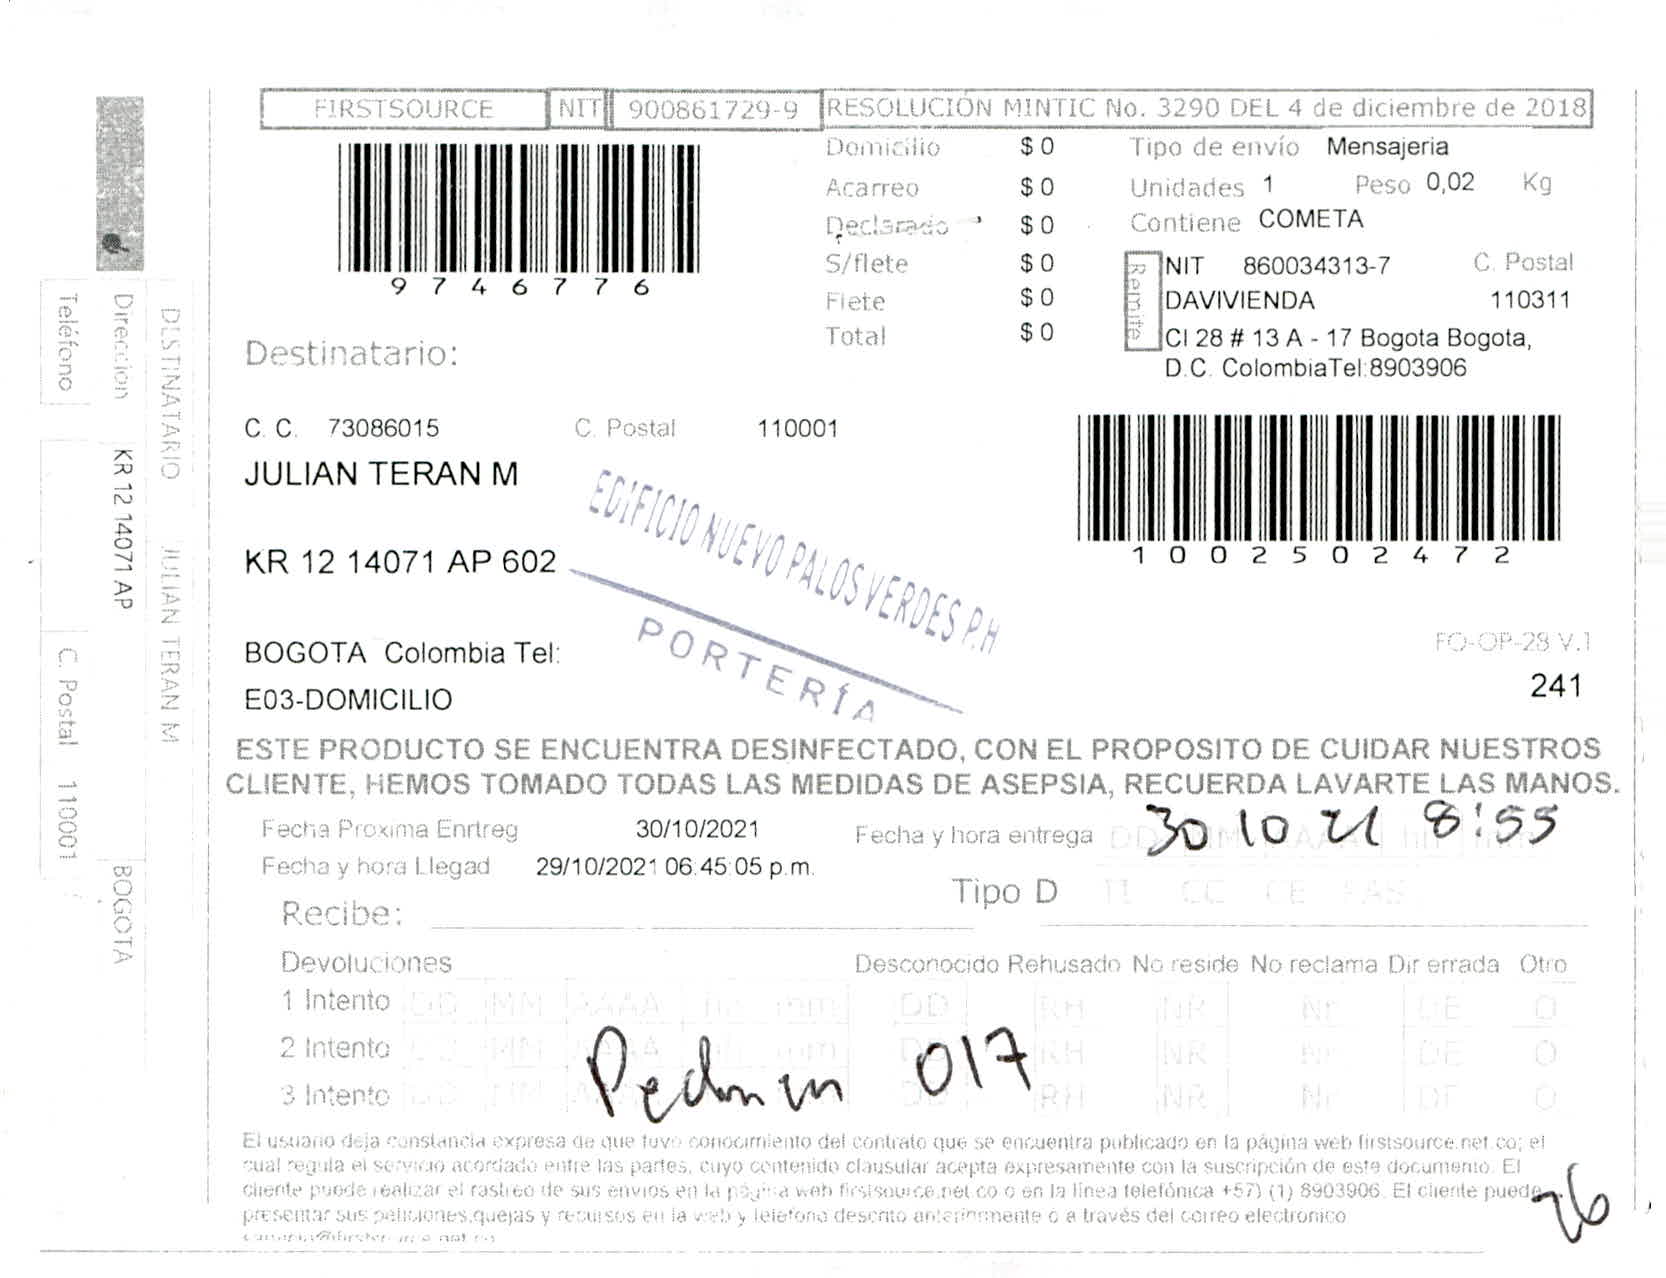 FIRSTSOURCE NIT 900861729-9 RESOLUCIÓN MINTIC No. 3290 DEL 4 de diciembre de 2018
9746776
Domicilio $ 0
Acarreo $ 0
Declarado $ 0
S/flete $ 0
Flete $ 0
Total $ 0
Tipo de envío Mensajeria
Unidades 1 Peso 0,02 Kg
Contiene COMETA
Remite
NIT 860034313-7 C. Postal
DAVIVIENDA 110311
Cl 28 # 13 A - 17 Bogota Bogota,
D.C. ColombiaTel:8903906
Destinatario:
C. C. 73086015 C. Postal 110001
JULIAN TERAN M
KR 12 14071 AP 602
BOGOTA Colombia Tel:
E03-DOMICILIO
EDIFICIO NUEVO PALOS VERDES P.H
PORTERÍA
1002502472
FO-OP-28 V.1
241
ESTE PRODUCTO SE ENCUENTRA DESINFECTADO, CON EL PROPOSITO DE CUIDAR NUESTROS
CLIENTE, HEMOS TOMADO TODAS LAS MEDIDAS DE ASEPSIA, RECUERDA LAVARTE LAS MANOS.
Fecha Proxima Enrtreg 30/10/2021 Fecha y hora entrega DD MM AAAA hh mm
30 10 21 8:55
Fecha y hora Llegad 29/10/2021 06:45:05 p.m.
Tipo D TI CC CE PAS
Recibe:
Devoluciones Desconocido Rehusado No reside No reclama Dir errada Otro
1 Intento DD MM AAAA hh mm DD RH NR Nr DE O
2 Intento DD MM AAAA hh mm DD RH NR Nr DE O
3 Intento DD MM AAAA hh mm DD RH NR Nr DE O
017
El usuario deja constancia expresa de que tuvo conocimiento del contrato que se encuentra publicado en la página web firstsource.net.co; el
cual regula el servicio acordado entre las partes, cuyo contenido clausular acepta expresamente con la suscripción de este documento. El
cliente puede realizar el rastreo de sus envios en la página web firstsource.net.co o en la linea telefónica +57) (1) 8903906. El cliente puede
presentar sus peticiones,quejas y recursos en la web y telefono descrito anteriormente o a través del correo electronico
26
DESTINATARIO JULIAN TERAN M
Dirección KR 12 14071 AP BOGOTA
Teléfono C. Postal 110001